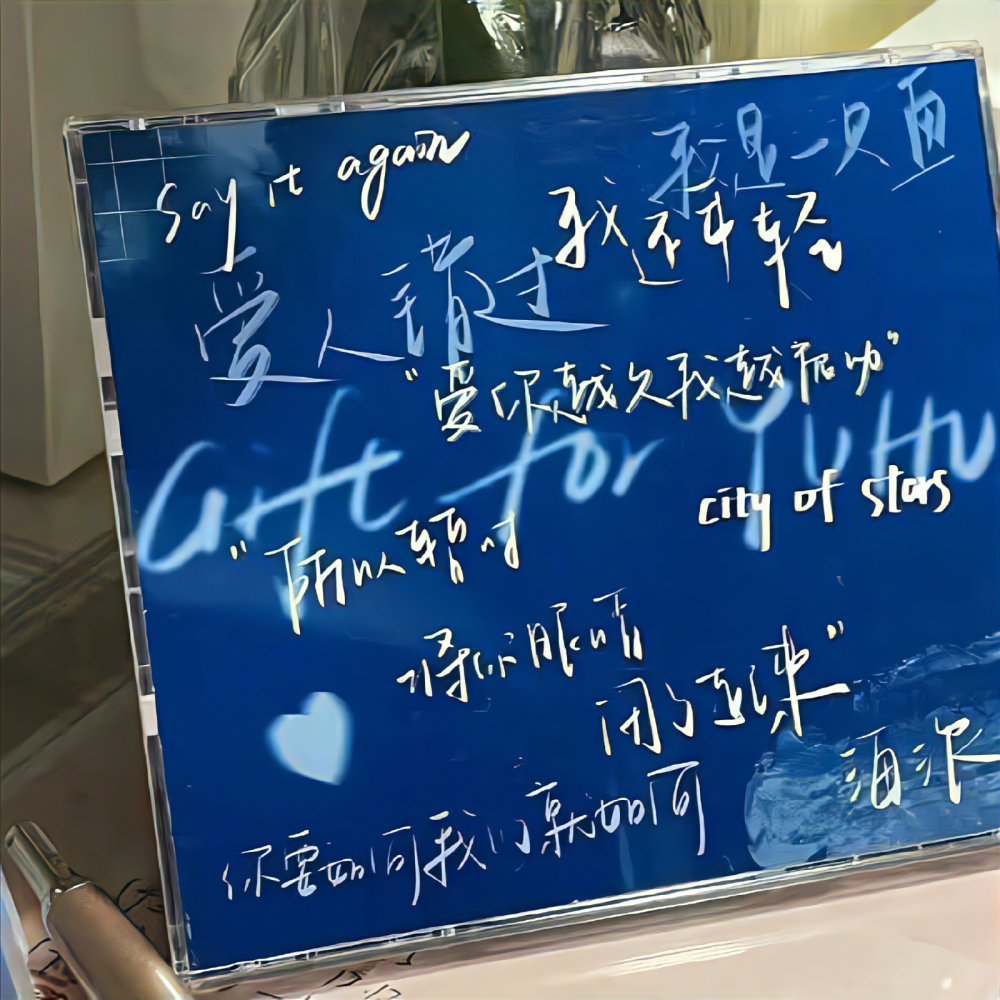 Say it again
我是一只鱼
我还年轻
爱人错过
“爱你越久我越被动”
Gift for
city of stars
“所以暂时
将你眼睛
闭了起来”
海浪
你要如何我们就如何